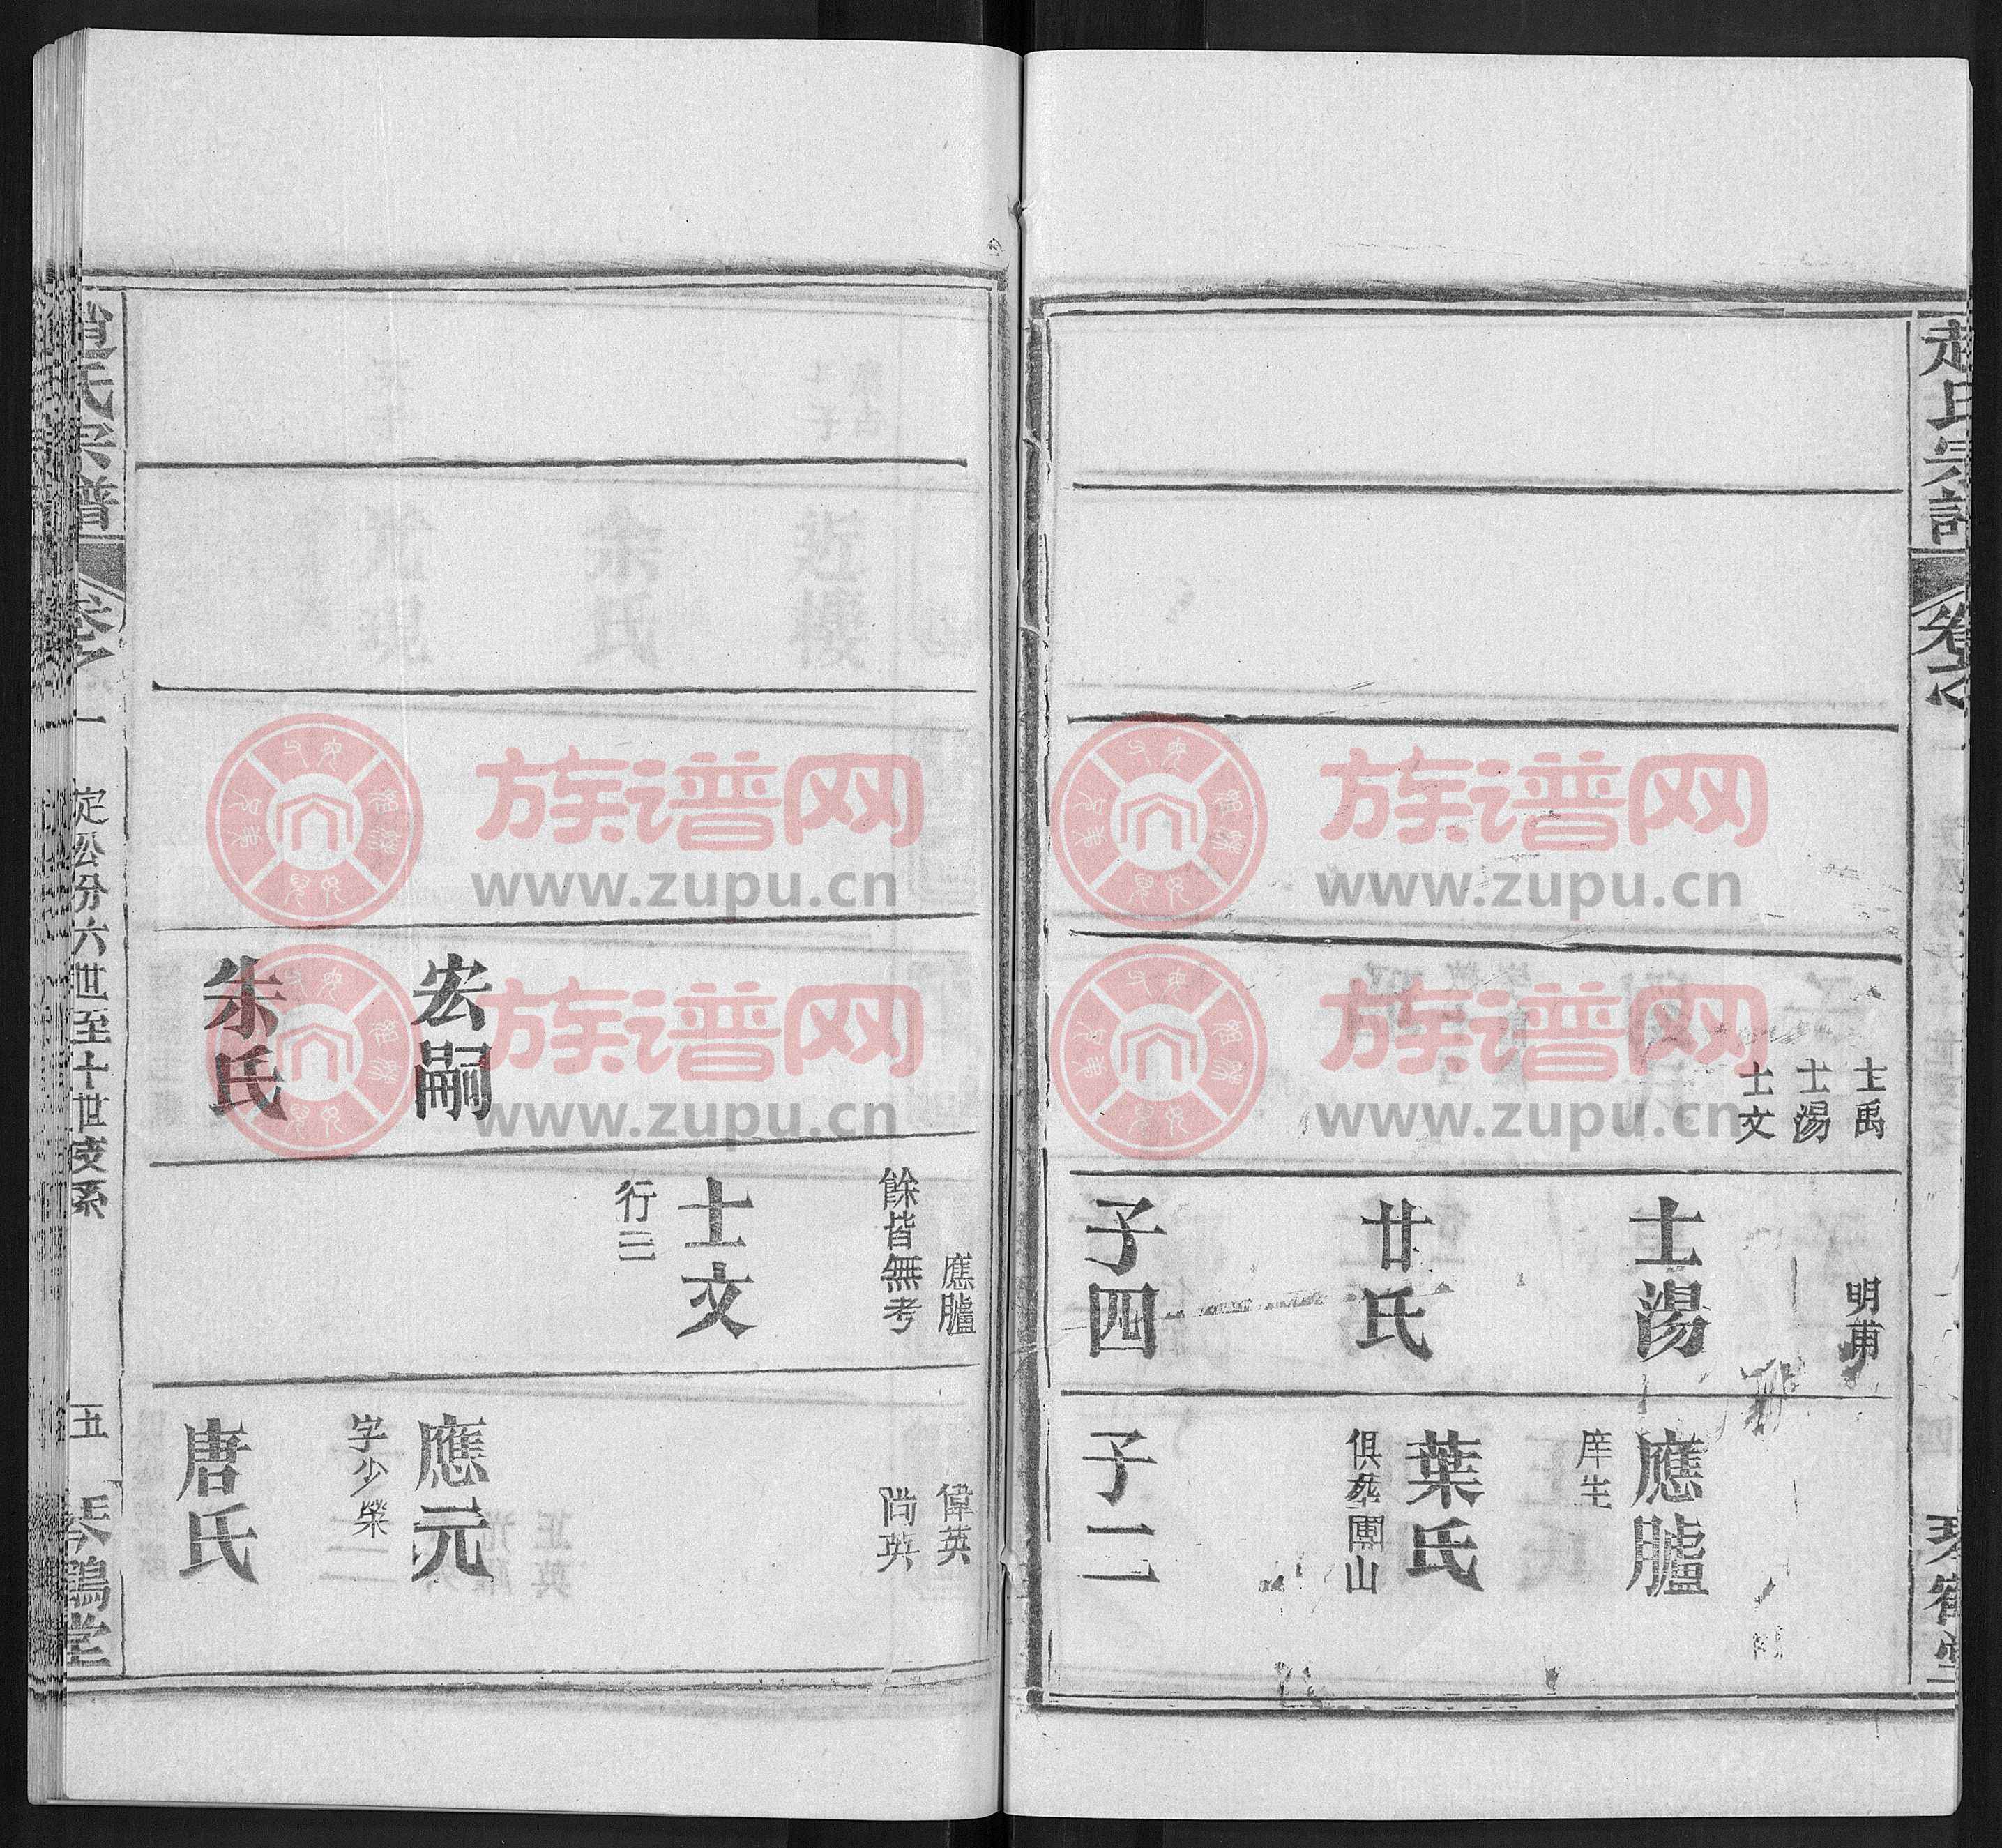 趙氏宗譜
卷之一
琴鶴堂
士禹
士湯
士文
明甫
士湯
廿氏
子四
應臚
庠生
葉氏
俱葬團山
子二
應臚
餘皆無考
士文
行三
偉英
尚英
宏嗣
朱氏
應元
字少榮
唐氏
趙氏宗譜
卷之一
定公分六世至十世支系
五
琴鶴堂
族谱网
www.zupu.cn
族谱网
www.zupu.cn
族谱网
www.zupu.cn
族谱网
www.zupu.cn